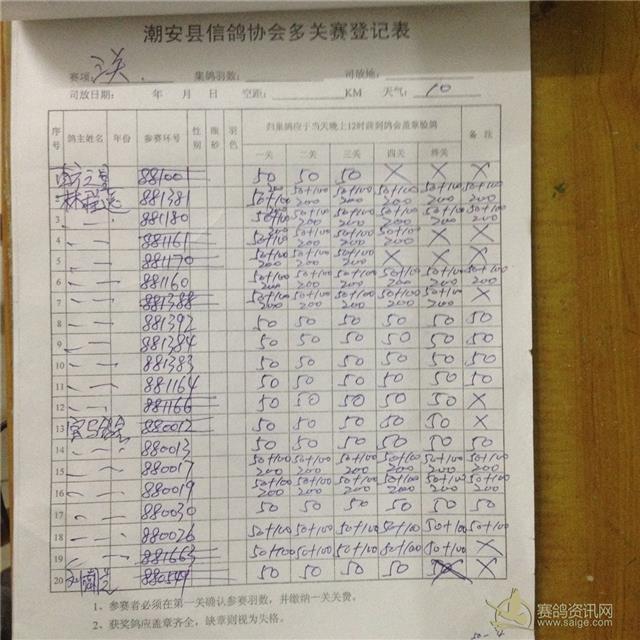 潮安县信鸽协会多关赛登记表
赛项: 三关 集鸽羽数: 司放地:
司放日期: 年 月 日 空距: KM 天气: 10
序号 鸽主姓名 年份 参赛环号 性别 眼砂 羽色 归巢鸽应于当天晚上12时前到鸽会盖章验鸽 备注
一关 二关 三关 四关 终关
881001 50 50 50 X X X
881381 50+100 200 50+100 200 50+100 200 50+100 200 50+100 200 50+100 200
3 881180 50+100 200 50+100 200 50+100 200 50+100 200 50+100 200 50+100 200
4 881161 50+100 50+100 200 50+100 200 50+100 200 X X
5 881170 50 50 50 X X X
6 881160 50+100 200 50+100 200 50+100 200 50+100 200 50+100 200 50+100 200
7 881388 50+100 200 50+100 200 50+100 200 50+100 200 50+100 200 X
8 881392 50 50 50 50 50 50
9 881384 50 50 50 50 50 50
10 881383 50 50 50 50 50 50
11 881164 50 50 50 50 50 50
12 881166 50 50 50 50 50 X
13 880012 50 50 50 50 50 X
14 880013 50 50 50 50 50 50
15 880017 50+100 200 50+100 200 50+100 200 50+100 200 50+100 200 50+100 200
16 880019 50+100 200 50+100 200 50+100 200 50+100 200 50+100 200 50+100 200
17 880030 50 50 50 50 50 50
18 880026 50+100 50+100 50+100 50+100 50+100 50+100
19 881663 50+100 50+100 50+100 50+100 50+100 X
20 880549 50 50 50 50 50 X
1、参赛者必须在第一关确认参赛羽数，并缴纳一关关费。
2、获奖鸽应盖章齐全，缺章则视为失格。
赛鸽资讯网
www.saige.com